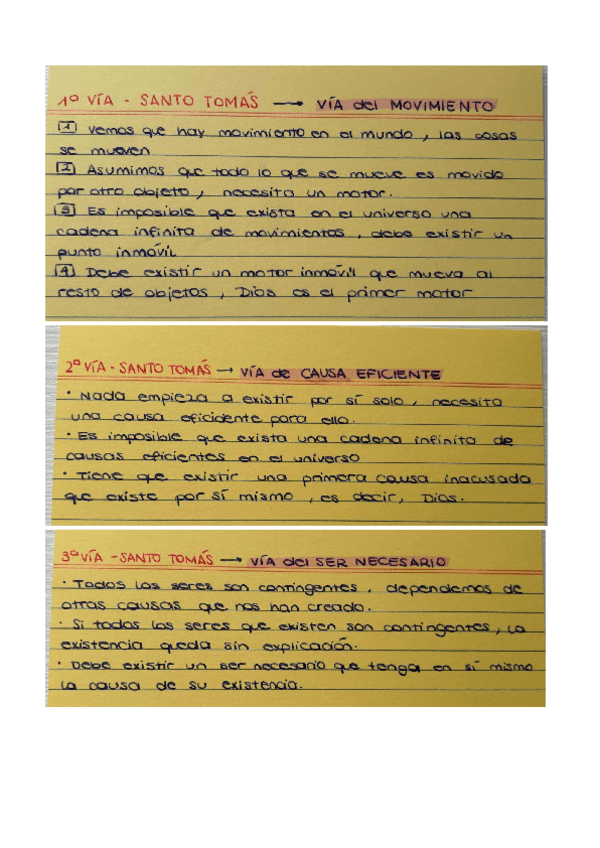 1º VÍA - SANTO TOMÁS → VÍA del MOVIMIENTO
1 Vemos que hay movimiento en el mundo, las cosas
se mueven
2 Asumimos que todo lo que se mueve es movido
por otro objeto, necesita un motor.
3 Es imposible que exista en el universo una
cadena infinita de movimientos, debe existir un
punto inmóvil
4 Debe existir un motor inmóvil que mueva al
resto de objetos, Dios es el primer motor
2º VÍA - SANTO TOMÁS → VÍA de CAUSA EFICIENTE
· Nada empieza a existir por sí solo, necesita
una causa eficidente para ello.
· Es imposible que exista una cadena infinita de
causas eficientes en el universo
· Tiene que existir una primera causa inacusada
que existe por sí mismo, es decir, Dios.
3º VÍA - SANTO TOMÁS → VÍA del SER NECESARIO
· Todos los seres son contingentes, dependemos de
otras causas que nos han creado.
· Si todos los seres que existen son contingentes, la
existencia queda sin explicación.
· Debe existir un ser necesario que tenga en sí mismo
la causa de su existencia.